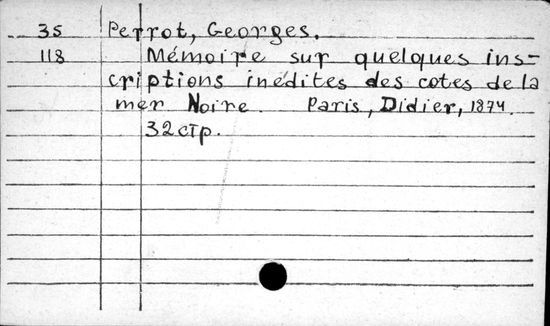 35 Perrot, Georges.
118 Mémoire sur quelques ins-
criptions inédites des cotes de la
mer Noire. Paris, Didier, 1874.
32 стр.